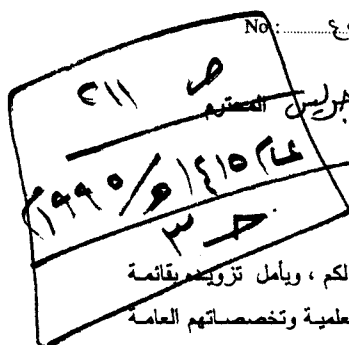 No :
ص ٢١١
جريس المحترم
عام ١٤١٥هـ/١٩٩٥م
جـ ٣
لكم ، ويأمل تزويدهم بقائمة
علمية وتخصصاتهم العامة